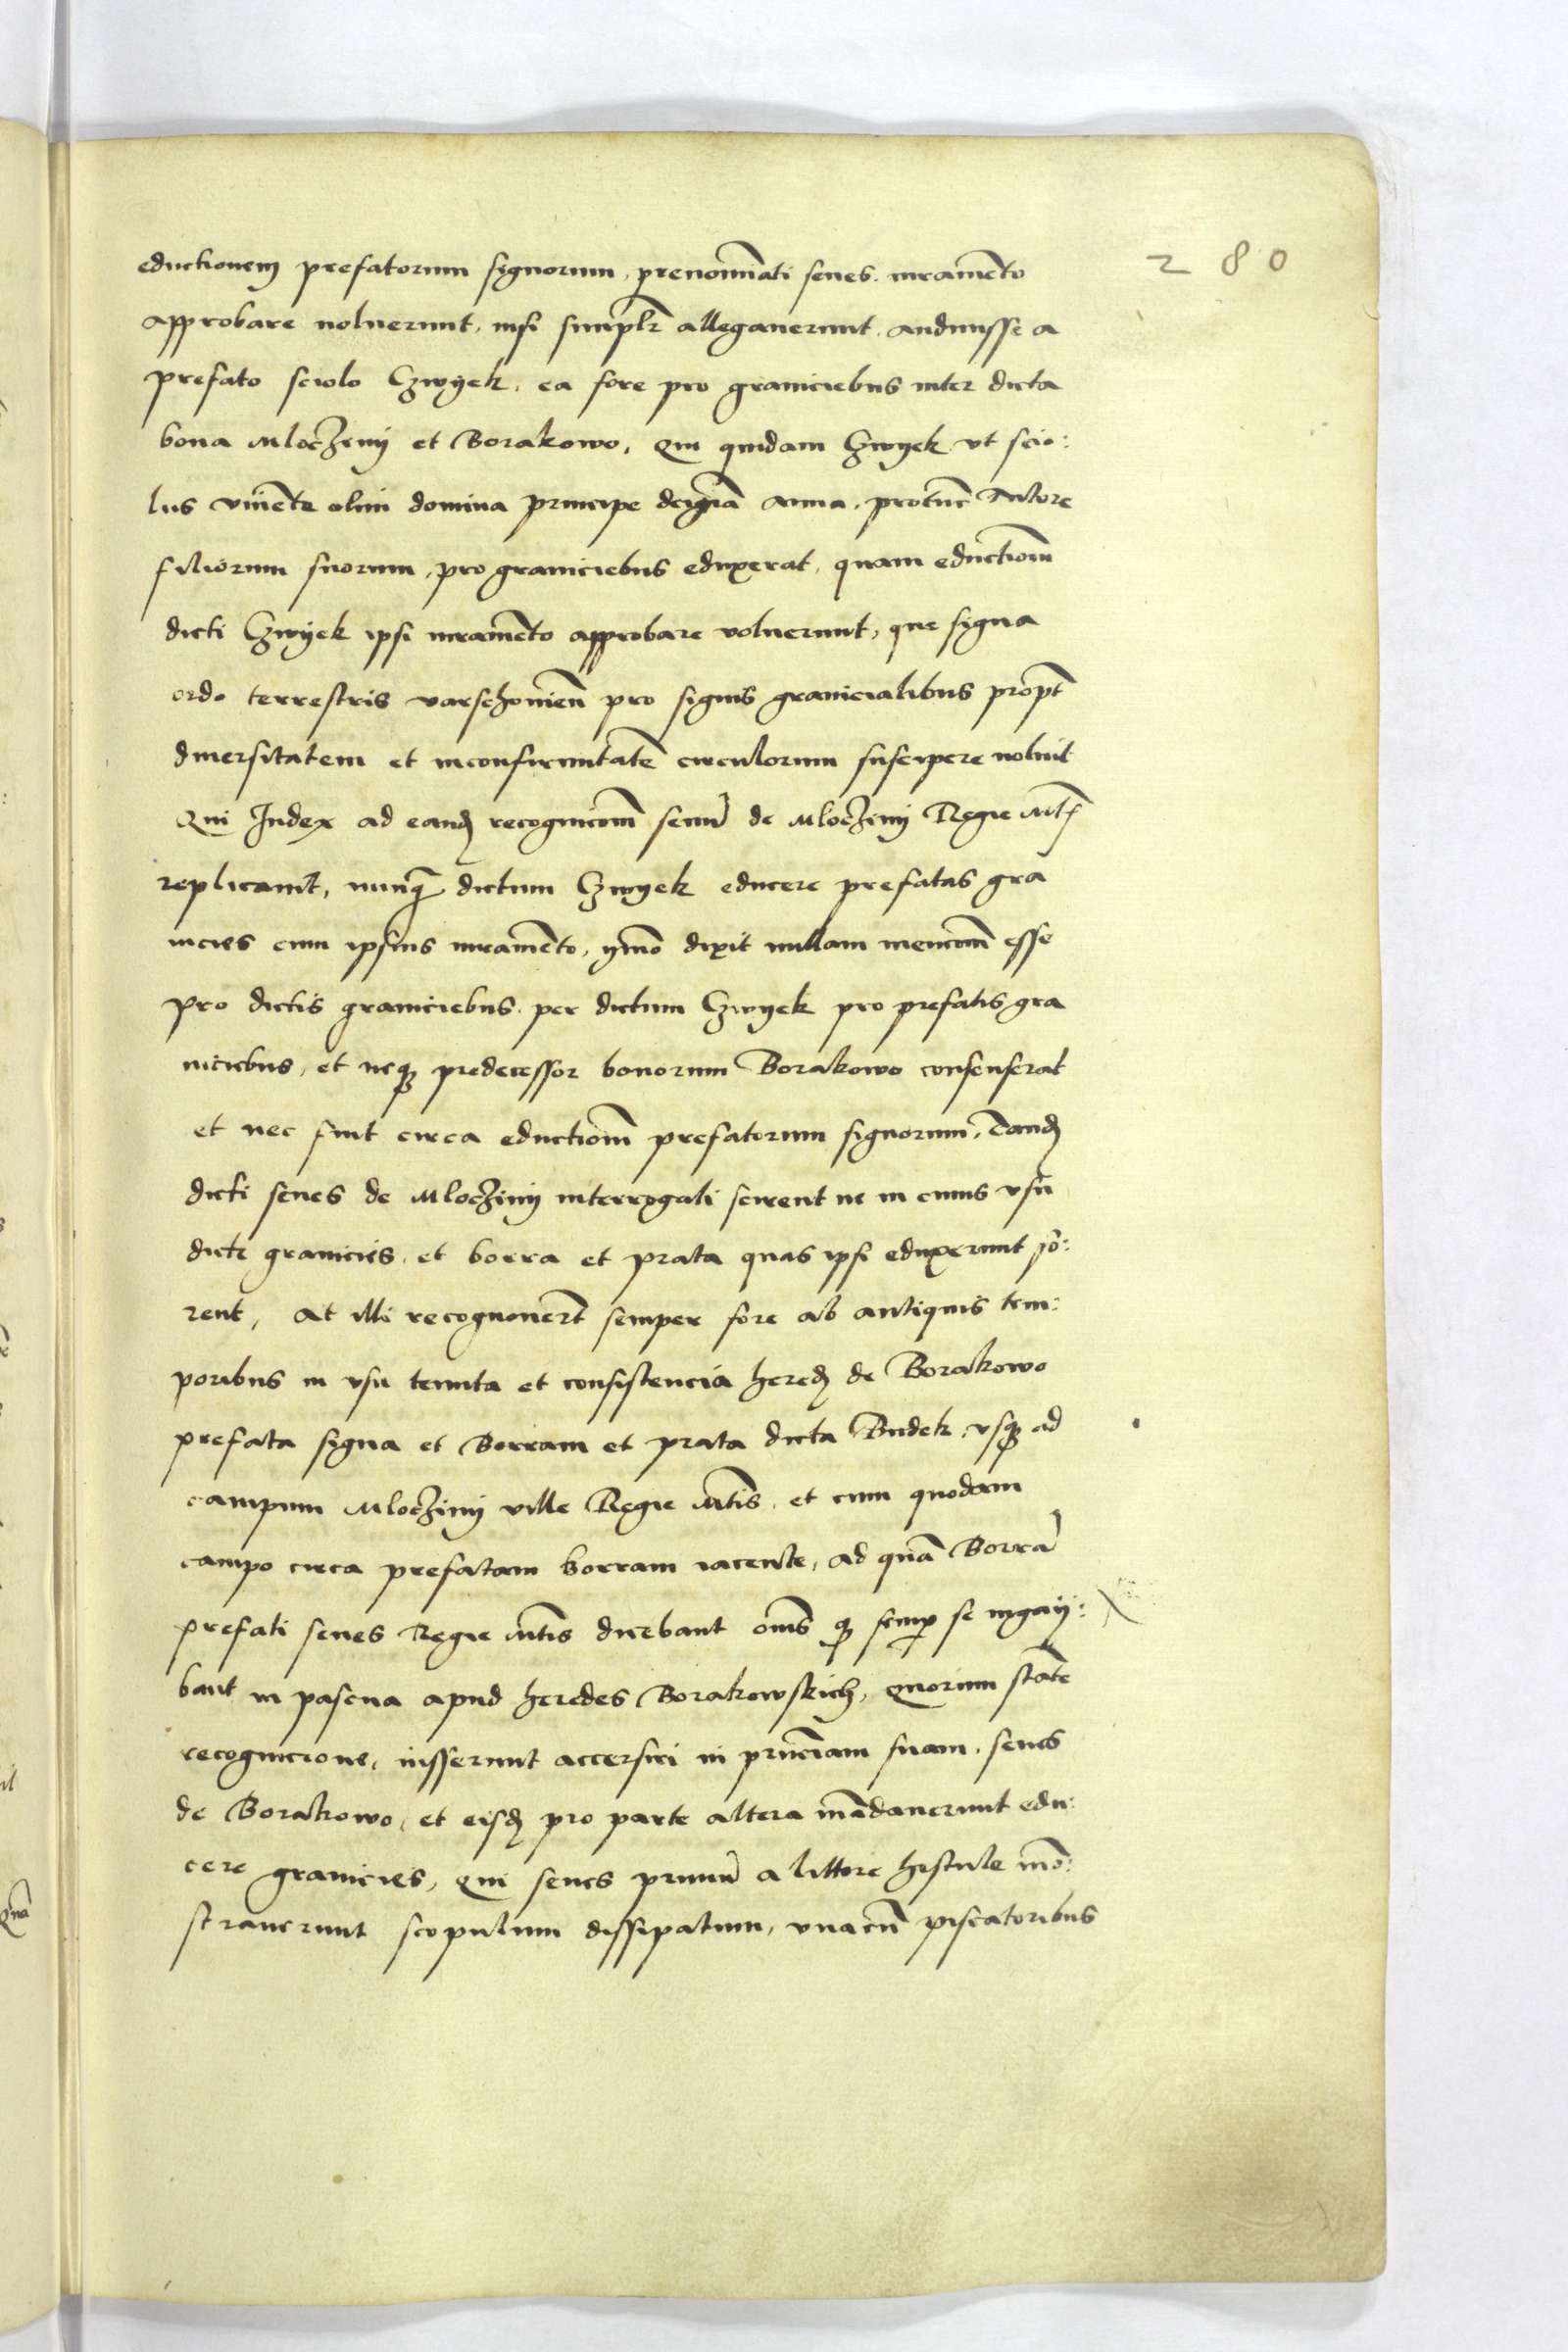 280
eductionem prefatorum signorum, prenominati senes iuramento
approbare noluerunt, nisi simplr allegauerunt, audiuisse a
prefato sciolo Czwyek, ea fore pro graniciebus inter dicta
bona Mloczyny et Borakowo, Qui quidam Czwyek vt scio:
lus viuente olim domina principe Anna, protunc tutore
filiorum suorum, pro graniciebus eduxerat, quam eductiom̄
dicti Czwyek ipsi iuramento approbare voluerunt, que signa
ordo terrestris varschouien̄ pro signis granicialibus propt
diuersitatem et inconfirmitate circulorum suscipere noluit
Qui Iudex ad eand recognicom̄ senū de Mloczyny Regie Mtis
replicauit, nunq̄ dictum Czwyek educere prefatas gra
nicies cum ipsius iuramento, ymo dixit nullam mencom̄ esse
pro dictis graniciebus per dictum Czwyek pro prefatis gra
niciebus, et neq predecessor bonorum Borakowo consenserat
et nec fuit circa eductiom̄ prefatorum signorum, Tand
dicti senes de Mloczyny interrogati scirent ne in cuius vsu
dicte granicies et borra et prata quas ipsi eduxerunt fo:
rent, At illi recognouert semper fore ab antiquis tem:
poribus in vsu tenuta et consistencia hered de Borakowo
prefata signa et Borram et prata dicta Budek vsq ad
campum Mloczyny ville Regie Mtis et cum quodam
campo circa prefatam borram iacente, ad quā Borrā
prefati senes Regie Mtis dicebant om̄s q semp se ingay:
bant in pascua apud heredes Borakowskich, quorum state
recognicione, iusserunt accersiri in pn̄ciam suam senes
de Borakowo, et eisd pro parte altera mādauerunt edu:
cere granicies, qui senes primū a littore histule mō:
strauerunt scopulum dissipatum, vnacū piscatoribus